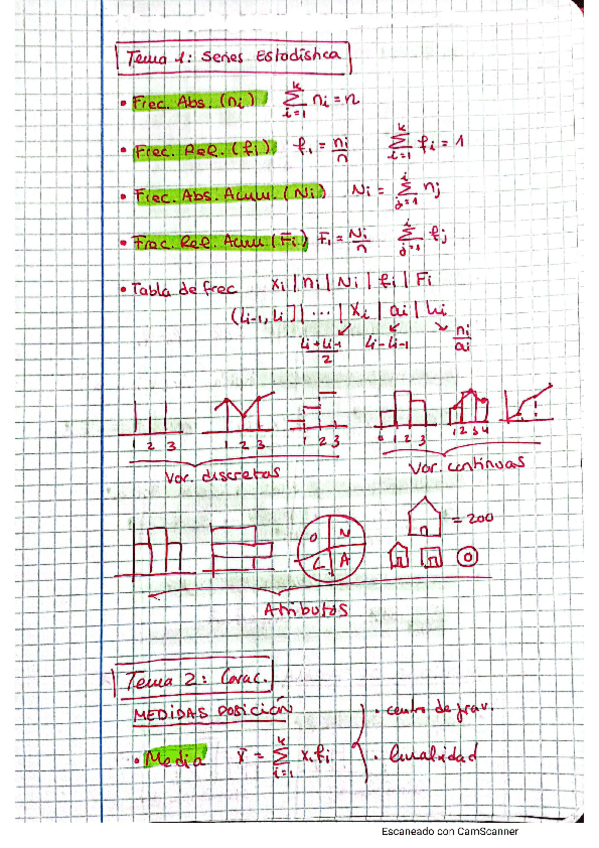 Tema 1: Series Estadística
• Frec. Abs. (ni) k Σ i=1 ni = n
• Frec. Rel. (fi) fi = ni/n k Σ i=1 fi = 1
• Frec. Abs. Acum. (Ni) Ni = i Σ j=1 nj
• Frec. Rel. Acum (Fi) Fi = Ni/n i Σ j=1 fj
• Tabla de frec xi | ni | Ni | fi | Fi
(Li-1, Li] | ... | xi | ai | hi
Li + Li-1 / 2 Li - Li-1 ni/ai
1 2 3 1 2 3 1 2 3 0 1 2 3 1 2 3 4
Var. discretas Var. continuas
O N = 200
L A
Atributos
Tema 2: Carac.
MEDIDAS POSICIÓN • centro de grav.
• Media x̄ = k Σ i=1 xi fi • linealidad
Escaneado con CamScanner